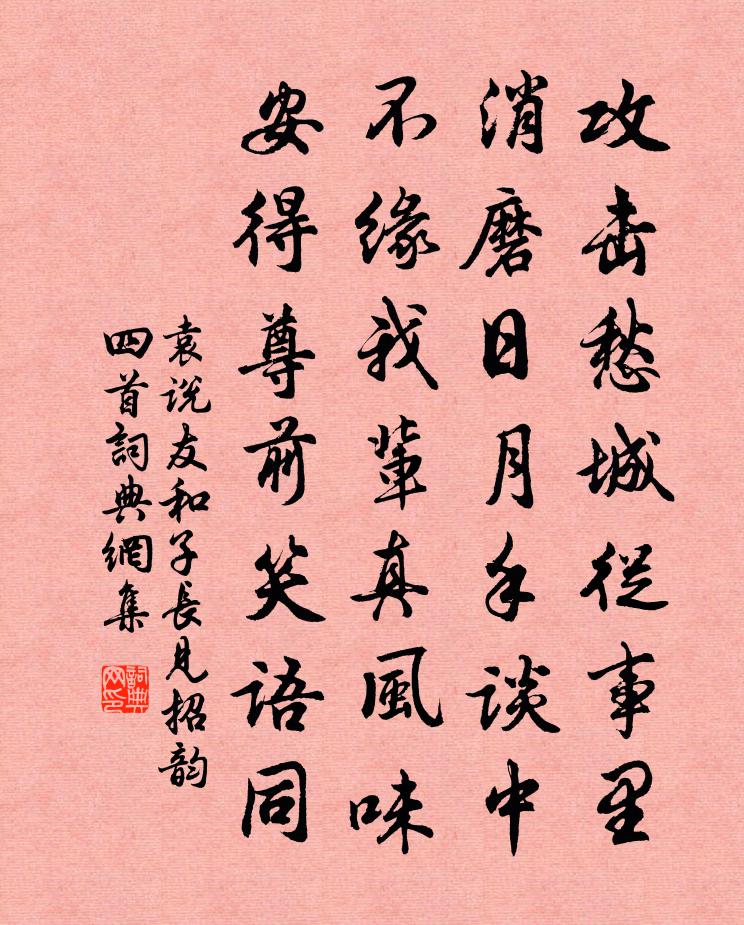 攻击愁城從事里
消磨日月手談中
不緣我輩真風味
安得尊前笑語同
袁说友和子長見招韵
四首詞典網集
詞典网印